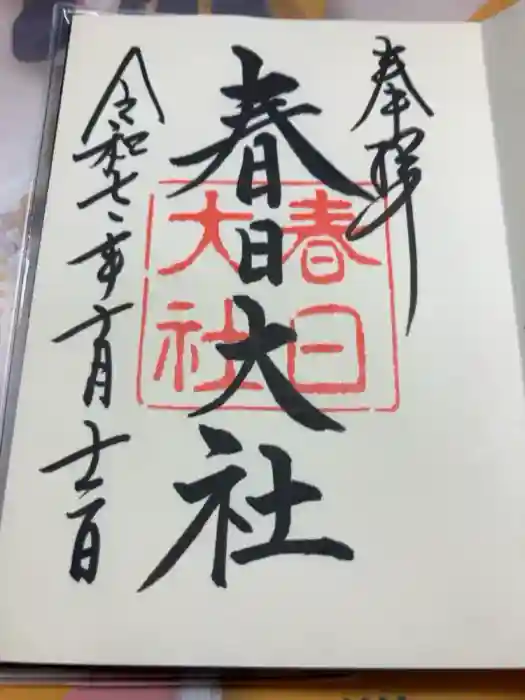 奉拝
春日大社
春日
大社
令和七年十月十二日